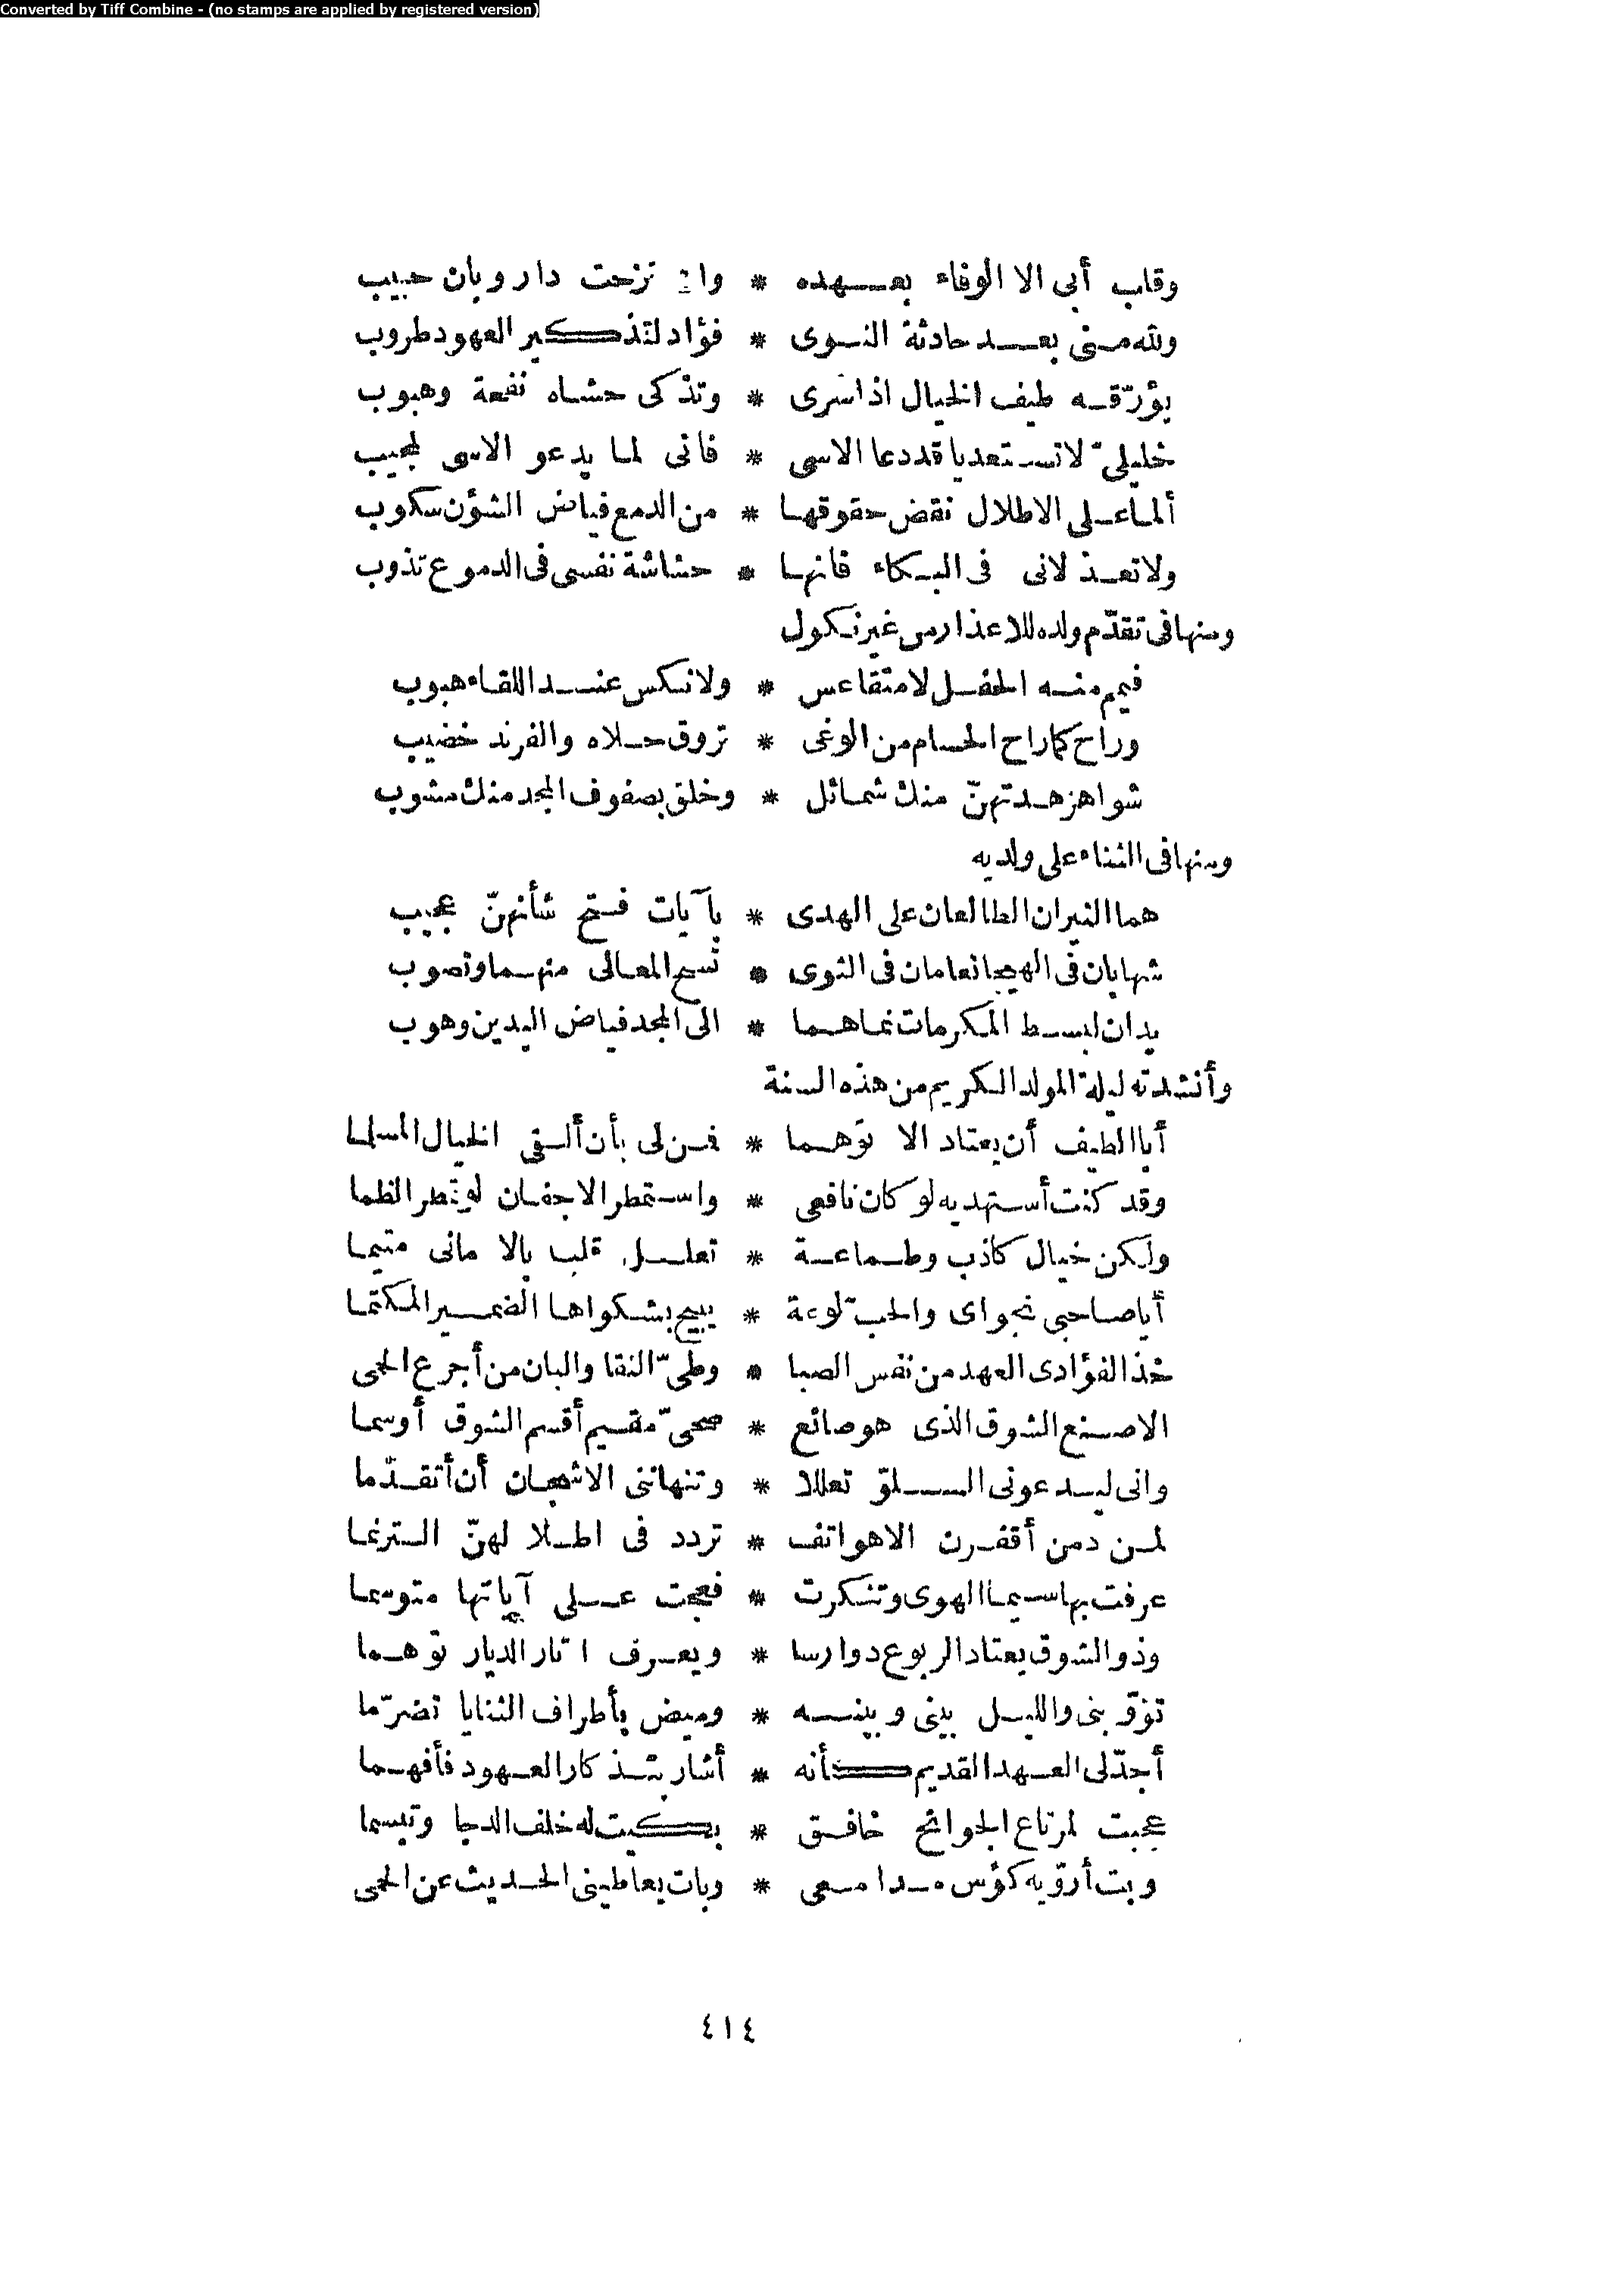 Converted by Tiff Combine - (no stamps are applied by registered version)
وقلب أبى الا الوفاء بعهده * وان نزحت دار وبان حبيب
ولله منى بعد حادثة النوى * فؤاد لتذكير العهود طروب
يؤرّقه طيف الخيال اذا سرى * وتذكى حشاه نفحة وهبوب
خليلىّ لا تستعديا قد دعا الاسى * فانى لما يدعو الاسى لمجيب
ألما على الاطلال نقض حقوقها * من الدمع فياض الشؤن سكوب
ولا تعذلانى فى البكاء فانها * حشاشة نفسى فى الدموع تذوب
ومنها فى تقدّم ولده للاعذار من غير نكول
فيمم منه الحفل لا متقاعس * ولا نكس عند اللقاء هبوب
وراح كما راح الحسام من الوغى * تروق حلاه والفرند خضيب
شواهز هدتهنّ منك شمائل * وخلق بصفوف المجد منك مشوب
ومنها فى الثناء على ولديه
هما النيران الطالعان على الهدى * بآيات فتح شأنهنّ عجيب
شهابان فى الهيجا نعامان فى الثوى * تسح المعالى منهما وتصوب
يدان لبسط المكرمات نماهما * الى المجد فياض اليدين وهوب
وأنشدته ليلة المولد الكريم من هذه السنة
أبا الطيف أن يعتاد الا توهما * فمن لى بأن ألقى الخيال المسلما
وقد كنت أستهديه لو كان نافعى * واستمطر الاجفان لو تمطر الظما
ولكن خيال كاذب وطماعة * تعلل قلبا بالامانى متيما
أيا صاحبى نجواى والحبّ لوعة * يبيح بشكواها الضمير المكتما
خذا لفؤادى العهد من نفس الصبا * وطىّ النقا والبان من أجرع الحمى
الا صنع الشوق الذى هو صانع * فحىّ مقيم أقسم الشوق أوسما
وانى ليدعونى السلوّ تعللا * وتنهاننى الاشجان أن أتقدّما
لمن دمن أقفرن الا هواتف * تردد فى اطلالهنّ الترنما
عرفت بها سيما الهوى وتنكرت * فعجت على آياتها متوسما
وذو الشوق يعتاد الربوع دوارسا * ويعرف اثار الديار توهما
تؤوّبنى والليل بينى وبينه * وميض بأطراف الثنايا تضرّما
أجدّ لى العهد القديم كأنه * أشار بتذكار العهود فأفهما
عجبت لمرتاع الجوانح خافق * بكيت له خلف الدجا وتبسما
وبت أروّيه كؤس مدامعى * وبات يعاطينى الحديث عن الحمى
٤١٤